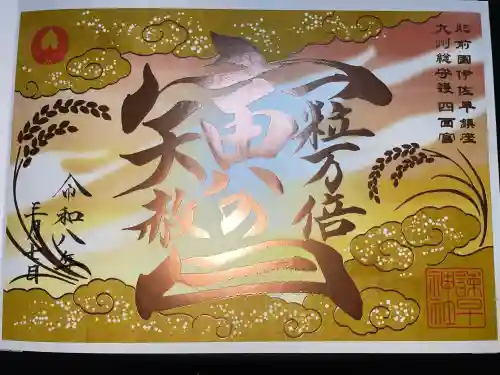 肥前國伊佐早鎮座
九州総守護四面宮
一粒万倍
寅の
天赦
日
令和八年
諫早
神社